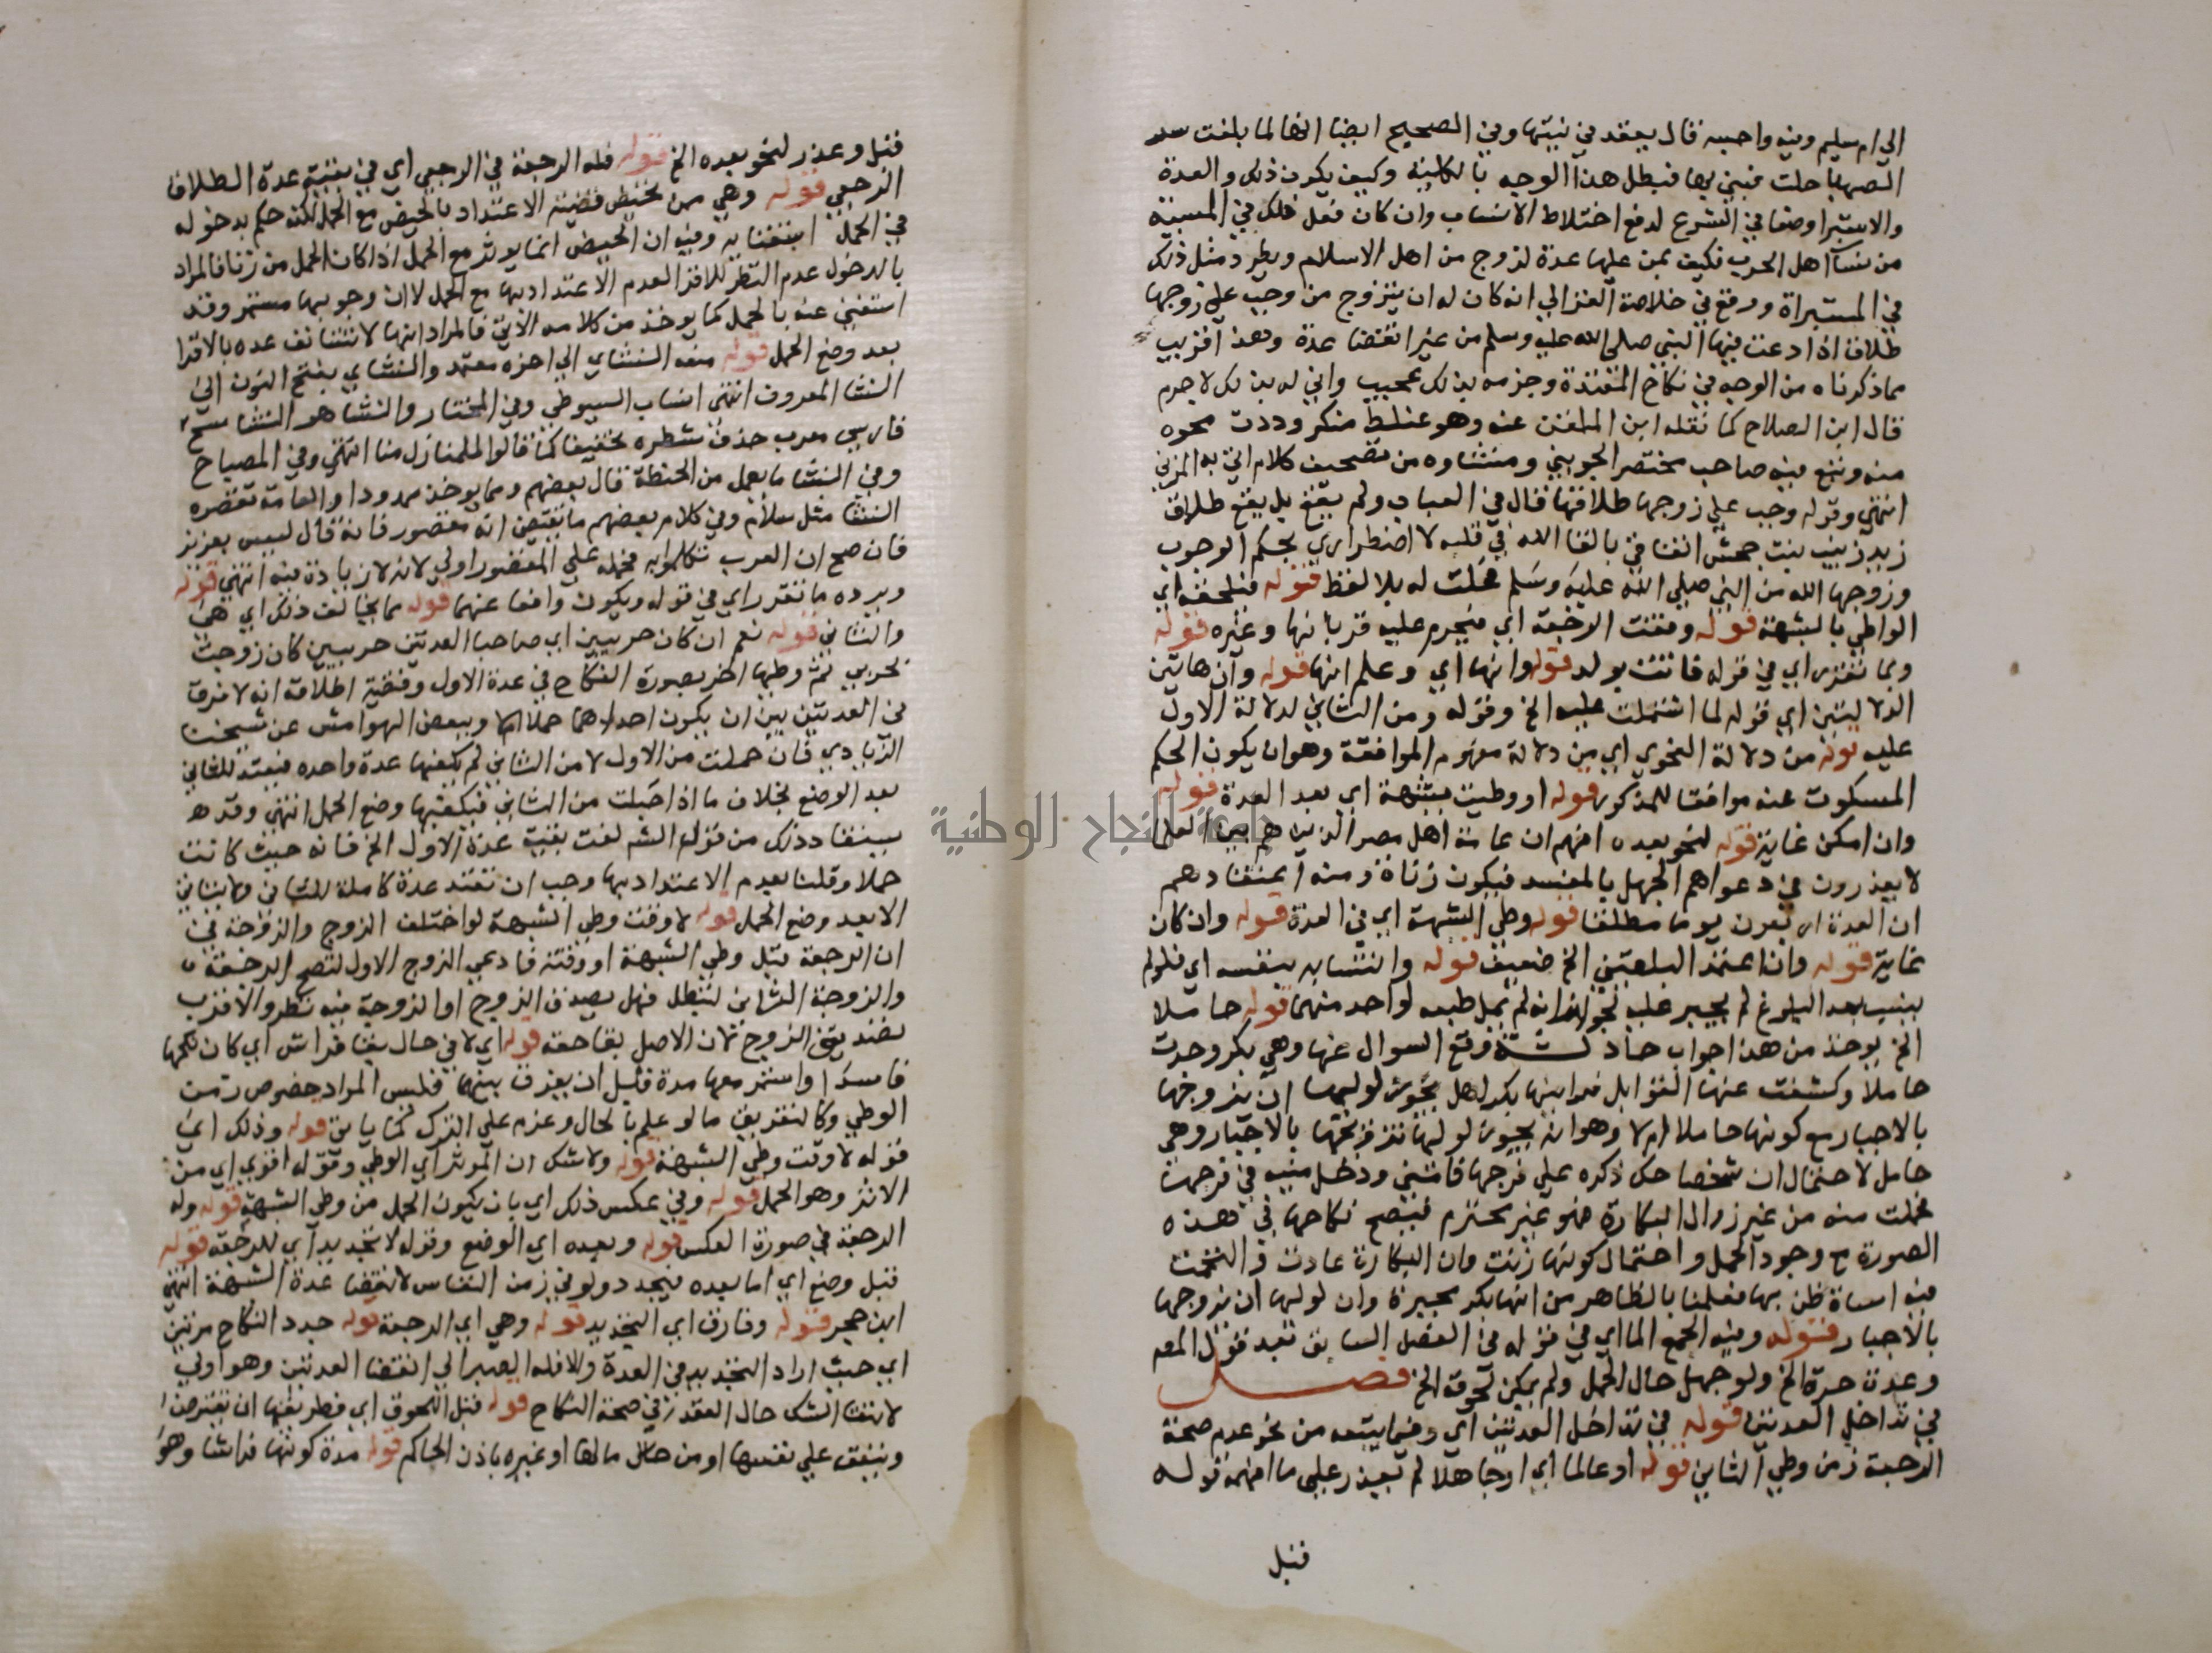 الي ام سليم وفيه واحسبه قال يعقد في بيتها وفي الصحيح ايضا انها لما بلغت سد
الصهبا حلت فبني بها فبطل هذا الوجه بالكلية وكيف يكون ذلك والعدة
والاستبرا وضعا في الشرع لدفع اختلاط الانساب وان كان فعل ذلك في المسبية
من نسا اهل الحرب فكيف بمن عليها عدة لزوج من اهل الاسلام ويطرد مثل ذلك
في المستبراة ووقع في خلاصة الغزالي انه كان له ان يتزوج من وجب علي زوجها
طلاقها اذا رغب فيها النبي صلي الله عليه وسلم من غير انقضا عدة وهذا اقرب
مما ذكرناه من الوجه في نكاح المعتدة وجزمه بذلك عجيب واني له بذلك لا جرم
قال ابن الصلاح كما نقله ابن الملقن عنه وهو غلط منكر وددت محوه
منه وتبع فيه صاحب مختصر الجويني ومنشاوه من تصحيف كلام اتي به المزني
انتهي وقوله وجب علي زوجها طلاقها قال في العباب ولم يقع بل يقع طلاق
زيد زينب بنت جحش اتفاقي بالقا الله في قلبه لا اضطراري بحكم الوجوب
وزوجها الله من النبي صلي الله عليه وسلم فحلت له بلا لفظ قوله فيلحقه اي
الواطي بالشبهة قوله ومقتت الرجعة اي فيحرم عليه قربانها وغيره قوله
وبما تقرر اي في قوله فاتت بولد قوله وانها اي وعلم انها قوله وان هاتين
الدلالتين اي قوله لما اشتملت عليه الخ وقوله ومن الثاني لدلالة الاول
عليه قوله من دلالة الفحوي اي من دلالة مفهوم الموافقة وهو ان يكون الحكم
المسكوت عنه موافقا للمذكور قوله او وطيت بشبهة اي بعد العدة قوله
وان امكن غاية قوله لنحو بعده افهم ان عامة اهل مصر الذين هم بين العلما
لا يعذرون في دعواهم الجهل بالمفسد فيكون زناة ومنه اعتقادهم
ان العدة اربعون يوما مطلقا قوله وطي الشبهة اي في العدة قوله وان كان
غاية قوله وان اعتمد البلقيني الخ ضعيف قوله وانتسابه بنفسه اي فلو لم
ينتسب بعد البلوغ لم يجبر عليه لجواز انه لم يمل طبعه لواحد منهما قوله حاملا
الخ يوخذ من هذا جواب حادثة وقع السوال عنها وهي بكر وجدت
حاملا وكشفت عنها القوابل فراينها بكرا هل يجوز لوليها ان يزوجها
بالاجبار مع كونها حاملا ام لا وهو انه يجوز لوليها تزويجها بالاجبار وهي
حامل لاحتمال ان شخصا حك ذكره علي فرجها فامني ودخل منيه في فرجها
فحملت منه من غير زوال البكارة فهو غير محترم فيصح نكاحها في هذه
الصورة مع وجود الحمل واحتمال كونها زنت وان البكارة عادت والتحمت
فيه اساة ظن بها فعلمنا بالظاهر من انها بكر مجبرة وان لوليها ان يزوجها
بالاجبار قوله وفيه الجمع الما اي في قوله في الفصل السابق بعد قول المص
وعدة حرة الخ ولو جهل حال الحمل ولم يمكن لحوقه الخ فصل
في تداخل العدتين قوله في تداخل العدتين اي وفيما يتبعه من نحو عدم صحة
الرجعة زمن وطي الثاني قوله او عالما اي او جاهلا لم يعذر علي ما افهمه قوله
قبل
قبل وعذر لنحو بعده الخ قوله فله الرجعة في الرجعي اي في بقية عدة الطلاق
الرجعي قوله وهي ممن تحيض قضيته الاعتداد بالحيض مع الحمل لكنه حكم بدخوله
في الحمل اكتفا به وفيه ان الحيض انما يوثر مع الحمل اذا كان الحمل من زنا فالمراد
بالدخول عدم النظر للاقرا لعدم الاعتداد بها مع الحمل لا ان وجوبها مستمر وقد
استغني عنه بالحمل كما يوخذ من كلامه الاتي فالمراد انها لا تستانف عده بالاقرا
بعد وضع الحمل قوله منه النشاي الي اخره معتمد والنشاي بفتح النون الي
النشا المعروف انتهي انساب السيوطي وفي المختار والنشا هو النشاستج
فارسي معرب حذف شطره تخفيفا كما قالوا للمنازل منا انتهي وفي المصباح
وفي النشا ما يعمل من الحنطة قال بعضهم ومما يوخذ ممدودا والعامة تقصره
النشا مثل سلام وفي كلام بعضهم ما يقتضي انه مقصور فانه قال ليس بعزيز
فان صح ان العرب تكلموا به فحمله علي المقصور اولي لانه لا زيادة فيه انتهي قوله
ويرده ما تقرر اي في قوله ويكون واقعا عنهما قوله مما يخالف ذلك اي هي
والثاني قوله نعم ان كان حربيين اي صاحبا العدتين حربيين كان زوجت
لحربي ثم وطيها اخر بصورة النكاح في عدة الاول وقضية اطلاقه انه لا فرق
في العدتين بين ان يكون احداهما حملا ام لا وببعض الهوامش عن شيخنا
الزيادي فان حملت من الاول لا من الثاني لم يكفيها عدة واحده فتعتد للثاني
بعد الوضع بخلاف ما اذا حبلت من الثاني فيكفيها وضع الحمل انتهي وقد
يستفاد ذلك من قول الش لغت بقية عدة الاول الخ فانه حيث كانت
حملا وقلنا بعدم الاعتداد بها وجب ان تعتد عدة كاملة للثاني ولا يتاتي
الا بعد وضع الحمل قوله لا وقت وطي الشبهة لو اختلف الزوج والزوجة في
ان الرجعة قبل وطي الشبهة او وقته فادعي الزوج الاول لتصح الرجعة
والزوجة الثاني لتبطل فهل يصدق الزوج او الزوجة فيه نظر والاقرب
تصديق الزوج لان الاصل بقا حقه قوله اي لا في حال بقا فراش اي كان نكحها
فاسدا واستمر معها مدة قبل ان يفرق بينهما فليس المراد خصوص زمن
الوطي وكالتفريق ما لو علم بالحال وعزم علي الترك كما ياتي قوله وذلك اي
قوله لا وقت وطي الشبهة قوله ولا شك ان الموثر اي الوطي وقوله اقوي اي من
الاثر وهو الحمل قوله وفي عكس ذلك اي بان يكون الحمل من وطي الشبهة قوله وله
الرجعة في صورة العكس قوله وبعده اي الوضع وقوله لا تجديد اي للرجعة قوله
قبل وضع اي اما بعده فيجدد ولو في زمن النفاس لانقضا عدة الشبهة انتهي
ابن حجر قوله وفارق اي التجديد قوله وهي اي الرجعة قوله جدد النكاح مرتين
اي حيث اراد التجديد في العدة والا فله الصبر الي انقضا العدتين وهو اولي
لانتفا الشك حال العقد في صحة النكاح قوله قبل اللحوق اي فطريقها ان تقترض
وتنفق علي نفسها او من حال مالها او غيره باذن الحاكم قوله مدة كونها فراشا وهو
جامعة النجاح الوطنية